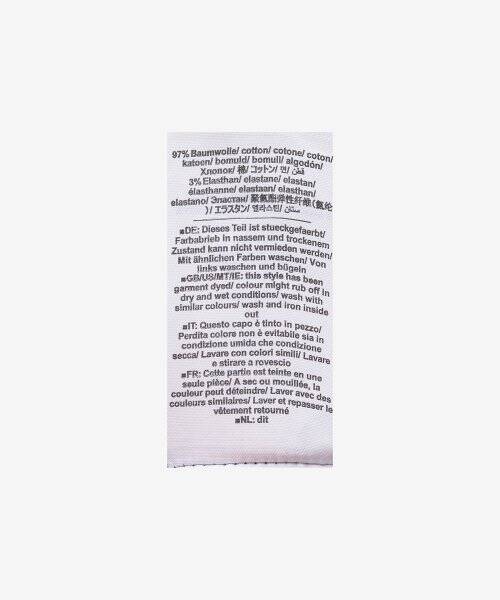 97% Baumwolle/ cotton/ cotone/ coton/
katoen/ bomuld/ bomull/ algodón/
Хлопок/ 棉/ コットン/ 면/ قطن
3% Elasthan/ elastane/ elastan/
élasthanne/ elastaan/ elasthan/
elastano/ Эластан/ 聚氨酯弹性纤维(氨纶
)/ エラスタン/ 엘라스틴/
■DE: Dieses Teil ist stueckgefaerbt/
Farbabrieb in nassem und trockenem
Zustand kann nicht vermieden werden/
Mit ähnlichen Farben waschen/ Von
links waschen und bügeln
■GB/US/MT/IE: this style has been
garment dyed/ colour might rub off in
dry and wet conditions/ wash with
similar colours/ wash and iron inside
out
■IT: Questo capo è tinto in pezzo/
Perdita colore non è evitabile sia in
condizione umida che condizione
secca/ Lavare con colori simili/ Lavare
e stirare a rovescio
■FR: Cette partie est teinte en une
seule pièce/ A sec ou mouillée, la
couleur peut déteindre/ Laver avec des
couleurs similaires/ Laver et repasser le
vêtement retourné
■NL: dit